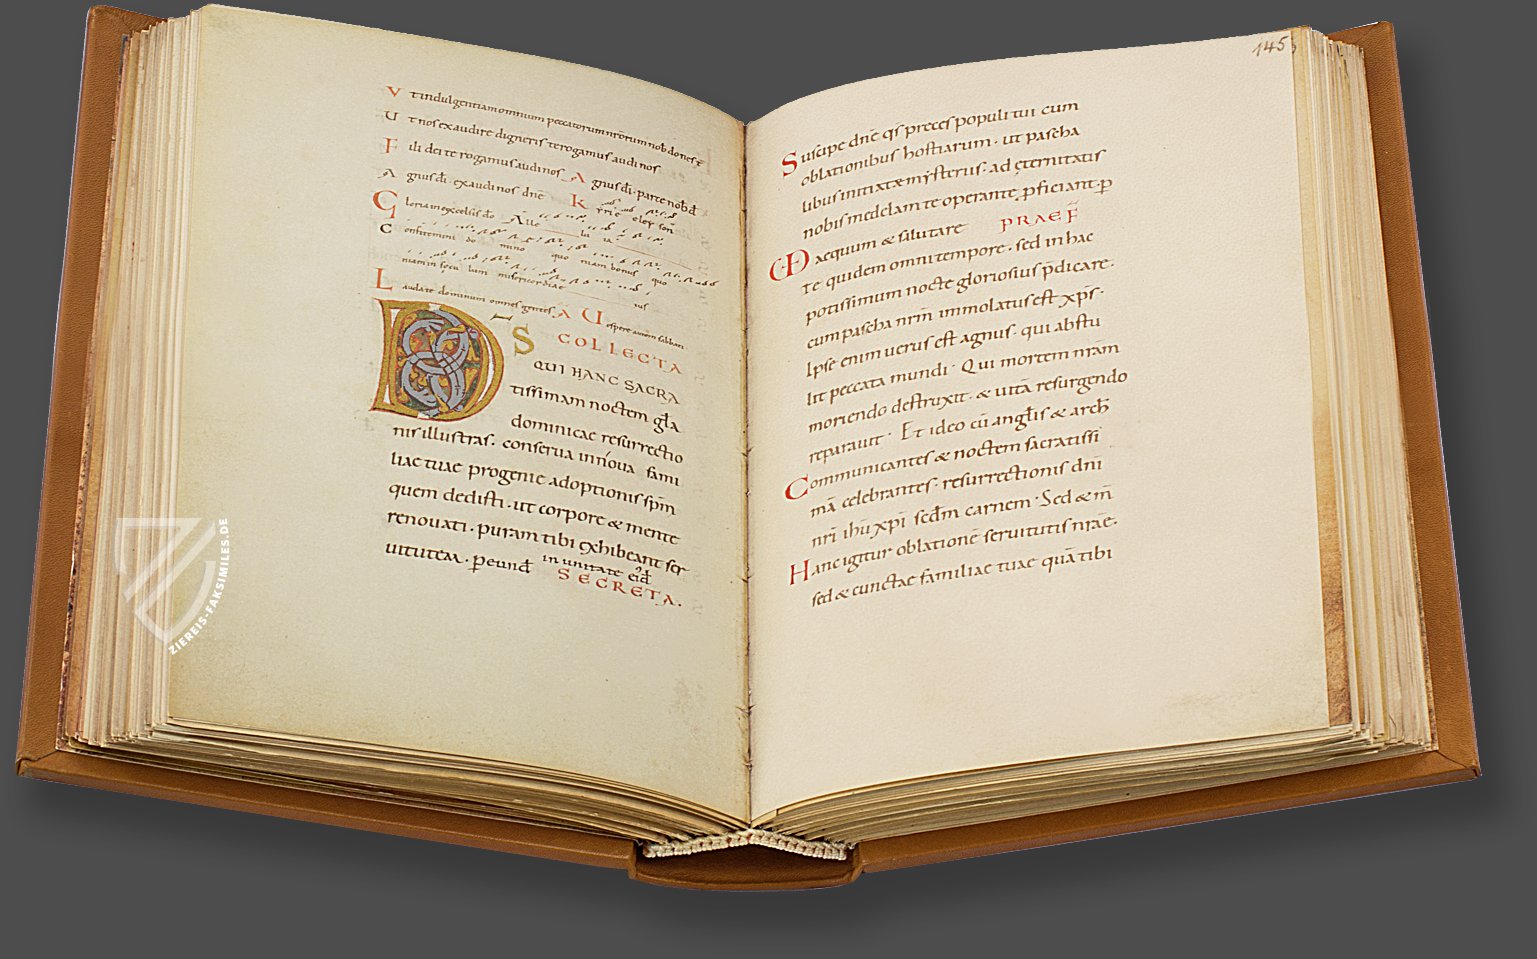 V t indulgentiam omnium peccatorum nr̄orum nob dones t̄
U t nos exaudire digneris te rogamus audi nos
F ili dei te rogamus audi nos A gnus dī parce nob d̄
A gnus dī exaudi nos dn̄e K yrie eleyson
G loria in excelsis dō Alle lu ia
C onfitemini do mino quo niam bonus quo
niam in secu lum misericordiae ius
L audate dominum omnes gentes A U espere autem sabbati
D S COLLECTA
QUI HANC SACRA
tissimam noctem gła
dominicae resurrectio
nis illustras. conserva in nova fami
liae tuae progenie adoptionis sp̄m
quem dedisti. ut corpore & mente
renovati. puram tibi exhibeant ser
vitutem. p̱ eund̄ in unitate eid̄
SECRETA.
145
Suscipe dn̄e qs preces populi tui cum
oblationibus hostiarum. ut pascha
libus initiatae mysteriis. ad ęternitatis
nobis medelam te operante p̱ficiant. p̱
PRAEF̄
VD aequum & salutare
te quidem omni tempore. sed in hac
potissimum nocte gloriosius p̄dicare.
cum pascha nr̄m immolatus est xp̄s.
Ipse enim uerus est agnus. qui abstu
lit peccata mundi. Qui mortem nr̄am
moriendo destruxit. & uitā resurgendo
reparauit. Et ideo cū angłis & arch̄
Communicantes & noctem sacratissi
mā celebrantes. resurrectionis dn̄i
nr̄i ihū xp̄i scd̄m carnem. Sed & m̄
Hanc igitur oblationē seruitutis nr̄ae.
sed & cunctae familiae tuae quā tibi
ZIEREIS-FAKSIMILES.DE